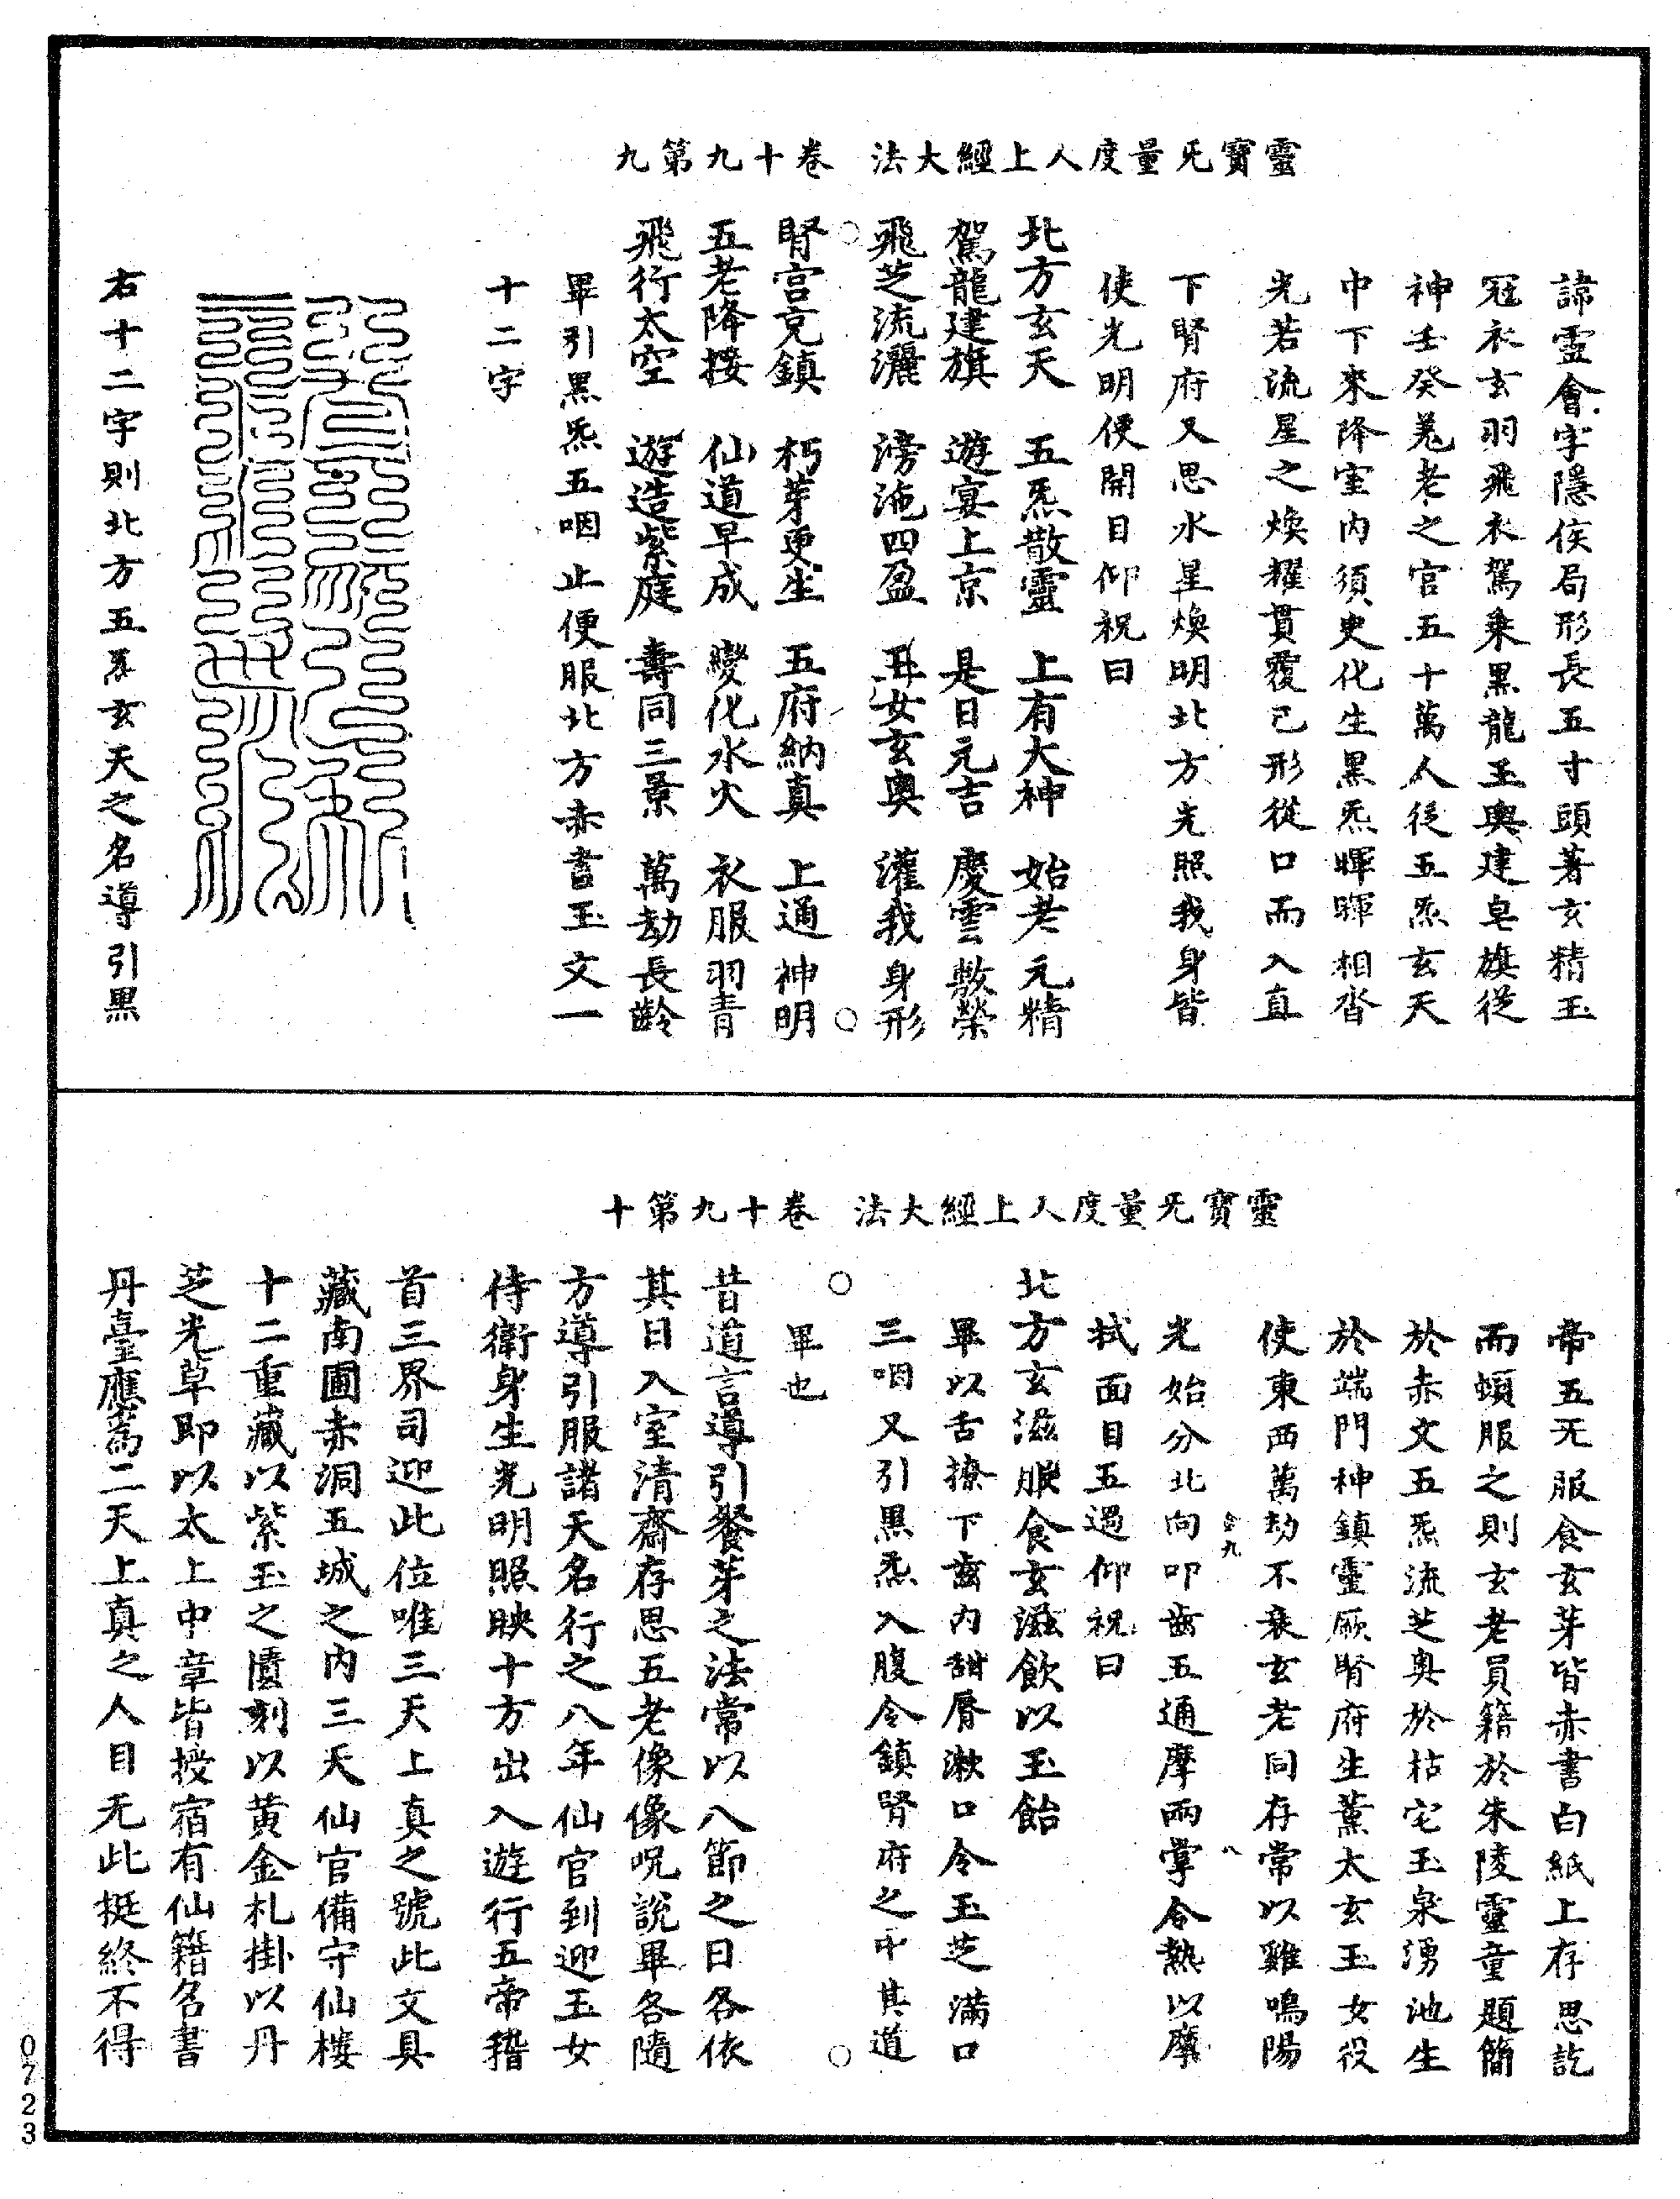 靈寶旡量度人上經大法　卷十九第九
諱靈會字隱侯局形長五寸頭著玄精玉
冠衣玄羽飛衣駕乘黑龍玉輿建皂旗從
神壬癸晁老之官五十萬人從五炁玄天
中下來降室內須臾化生黑炁暉暉相沓
光若流星之煥耀貫覆己形從口而入直
下腎府又思水星煥明北方光照我身皆
使光明便開目仰祝曰
北方玄天　五炁散靈　上有大神　始老元精
駕龍建旗　遊宴上京　是日元吉　慶雲敷榮
飛芝流灑　滂沲四盈　丑女玄輿　灌我身形
腎宮充鎮　朽芽更生　五府納真　上通神明
五老降接　仙道早成　變化水火　衣服羽青
飛行太空　遊造紫庭　壽同三景　萬劫長齡
畢引黑炁五咽止便服北方赤書玉文一
十二字
右十二字則北方五炁玄天之名導引黑
靈寶旡量度人上經大法　卷十九第十
帝五旡服食玄芽皆赤書白紙上存思訖
而頓服之則玄老員籍於朱陵靈童題簡
於赤文五炁流芝奧於枯宅玉泉湧池生
於端門神鎮靈厥腎府生薫太玄玉女役
使東西萬劫不衰玄老同存常以雞鳴陽
九　八
光始分北向叩齒五通摩兩掌令熱以摩
拭面目五過仰祝曰
北方玄滋服食玄滋飲以玉飴
畢以舌撩下齒內甜脣漱口令玉芝滿口
三咽又引黑炁入腹令鎮腎府之中其道
畢也
昔道言導引餐芽之法常以八節之日各依
其日入室清齋存思五老像像呪說畢各隨
方導引服諸天名行之八年仙官到迎玉女
侍衛身生光明照映十方出入遊行五帝稽
首三界司迎此位唯三天上真之號此文具
藏南圃赤洞五城之內三天仙官備守仙樓
十二重藏以紫玉之匱刻以黃金札掛以丹
芝光草即以太上中章皆授宿有仙籍名書
丹臺應為二天上真之人目无此挺終不得
0723